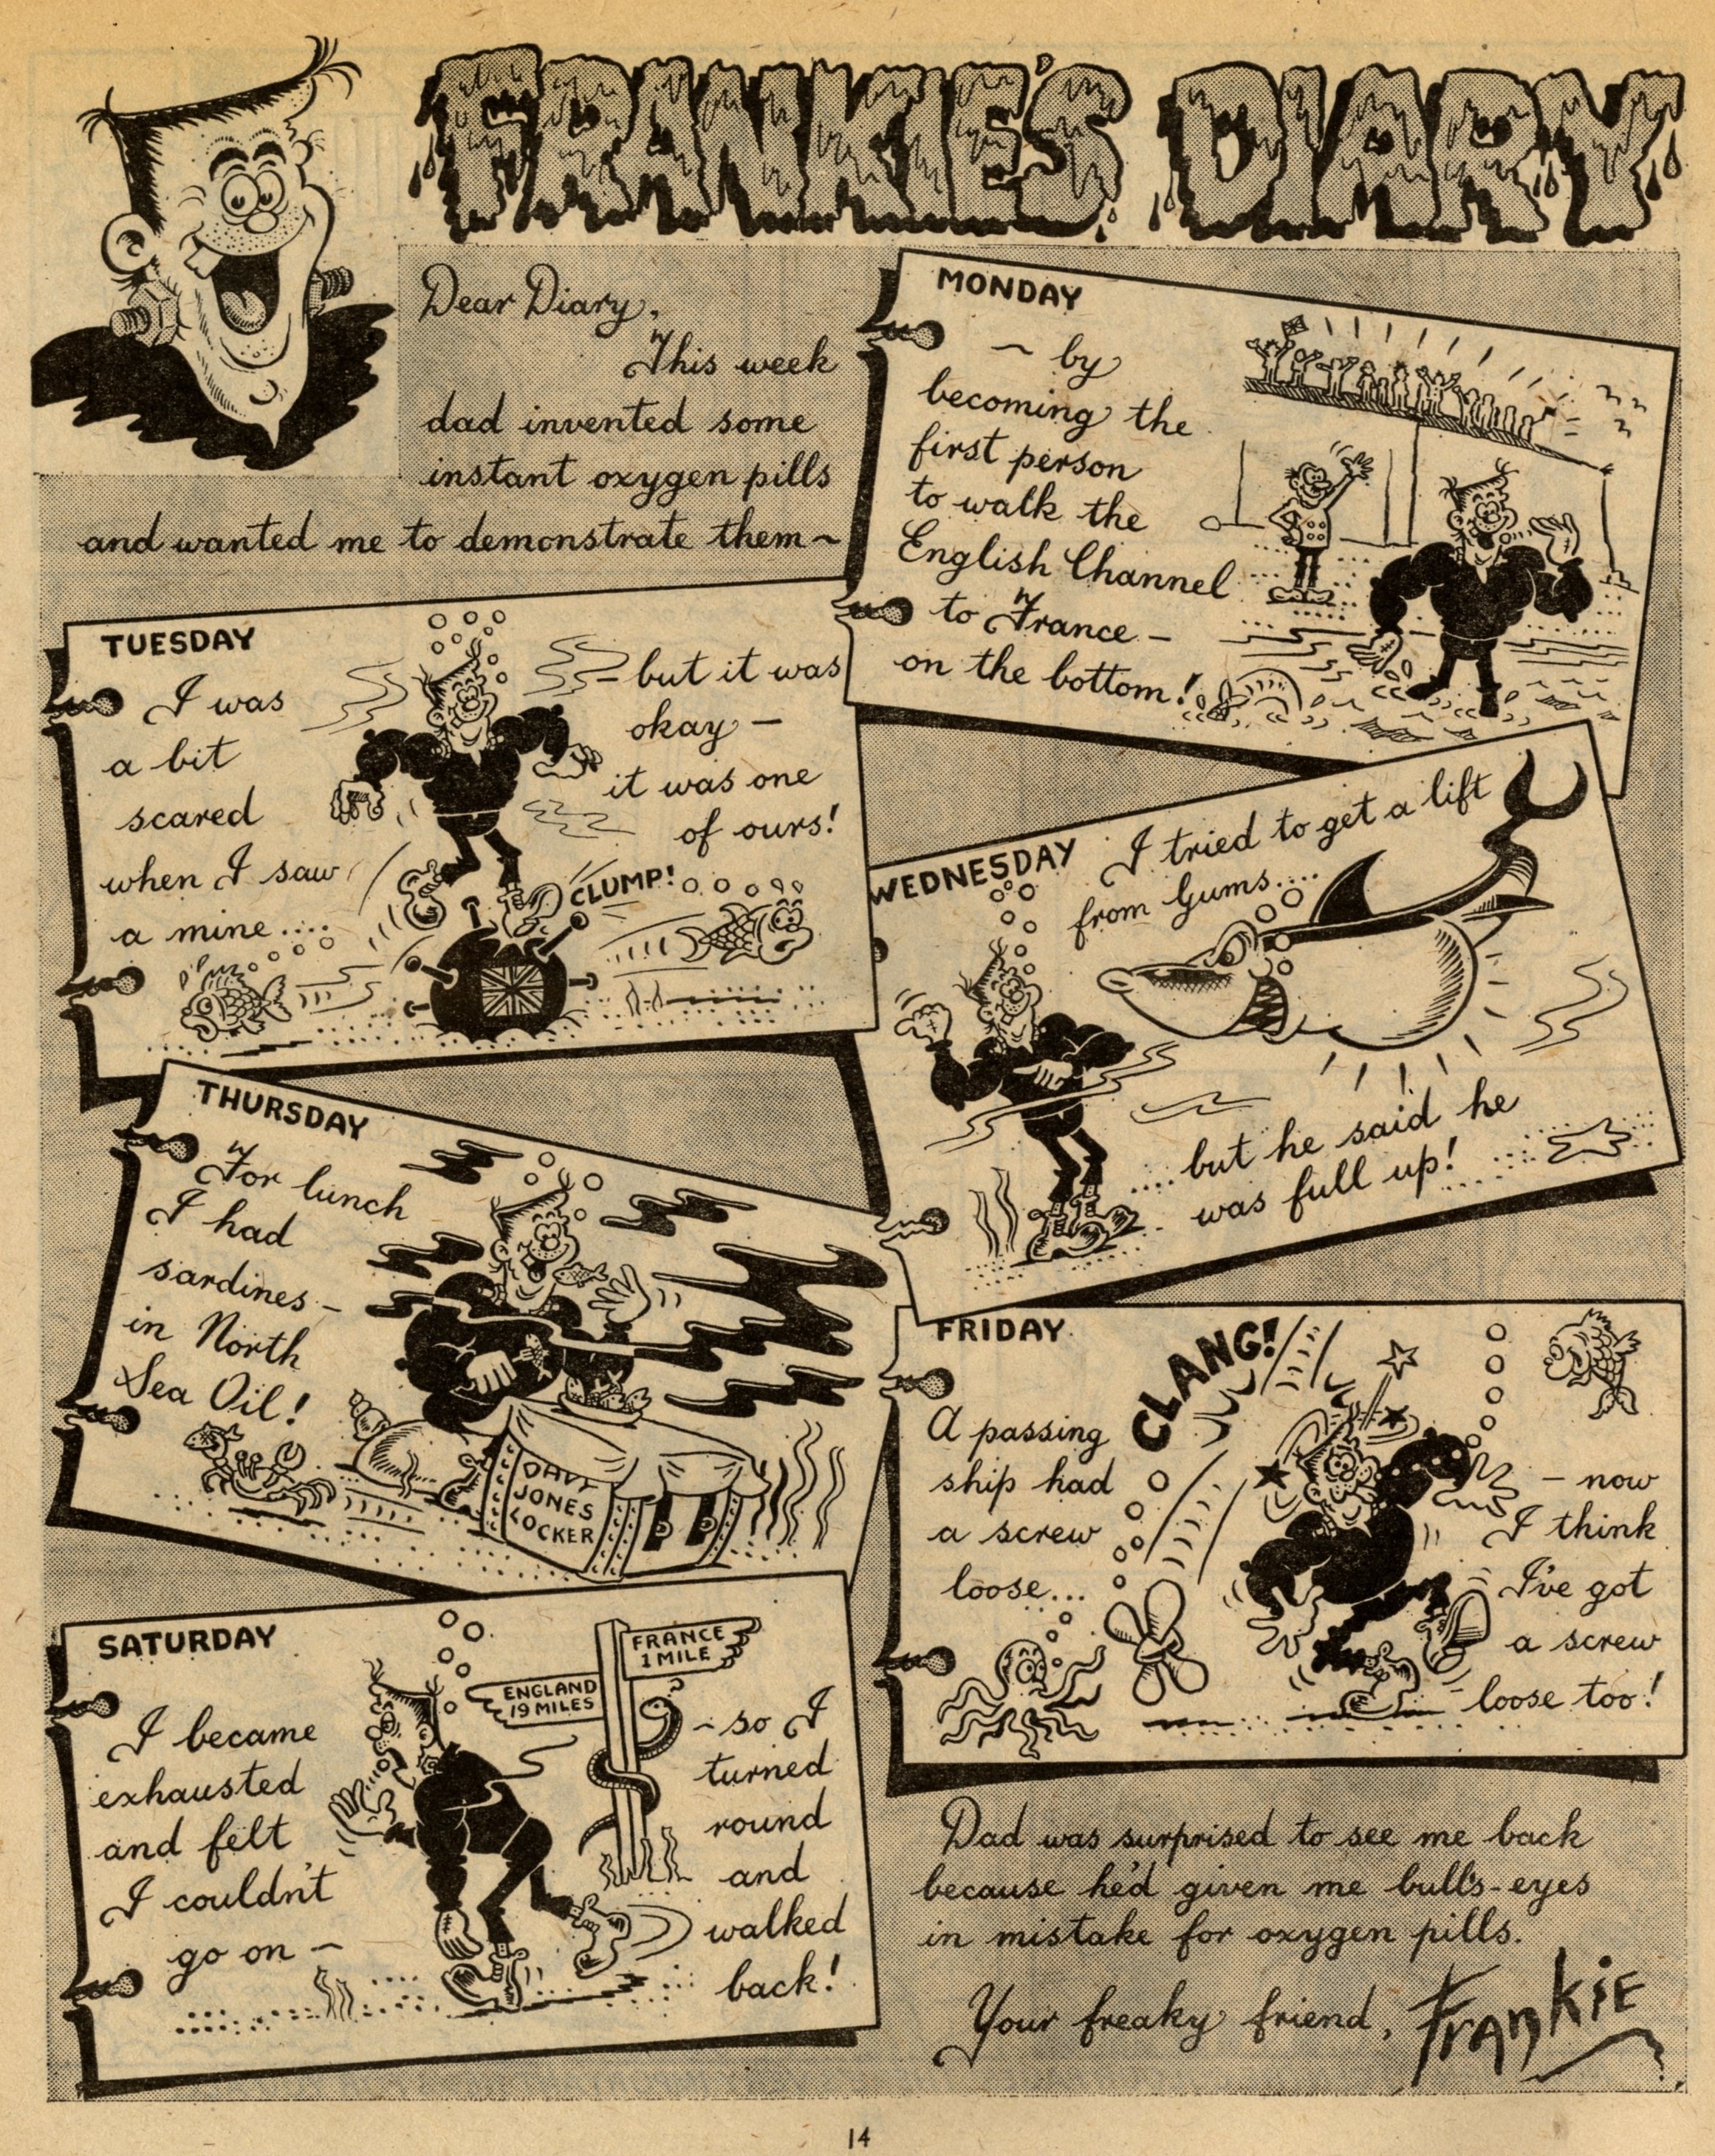 FRANKIE'S DIARY
Dear Diary,
This week
dad invented some
instant oxygen pills
and wanted me to demonstrate them~
MONDAY
~ by
becoming the
first person
to walk the
English Channel
to France -
on the bottom!
TUESDAY
I was
a bit
scared
when I saw
a mine....
- but it was
okay -
it was one
of ours!
CLUMP!
WEDNESDAY
I tried to get a lift
from Gums....
....but he said he
was full up!
THURSDAY
For lunch
I had
sardines -
in North
Sea Oil!
DAVY
JONES
LOCKER
FRIDAY
CLANG!
A passing
ship had
a screw
loose...
- now
I think
I've got
a screw
loose too!
SATURDAY
I became
exhausted
and felt
I couldn't
go on ~
FRANCE
1 MILE
ENGLAND
19 MILES
~ so I
turned
round
and
walked
back!
Dad was surprised to see me back
because he'd given me bull's-eyes
in mistake for oxygen pills.
Your freaky friend, FRANKIE
14